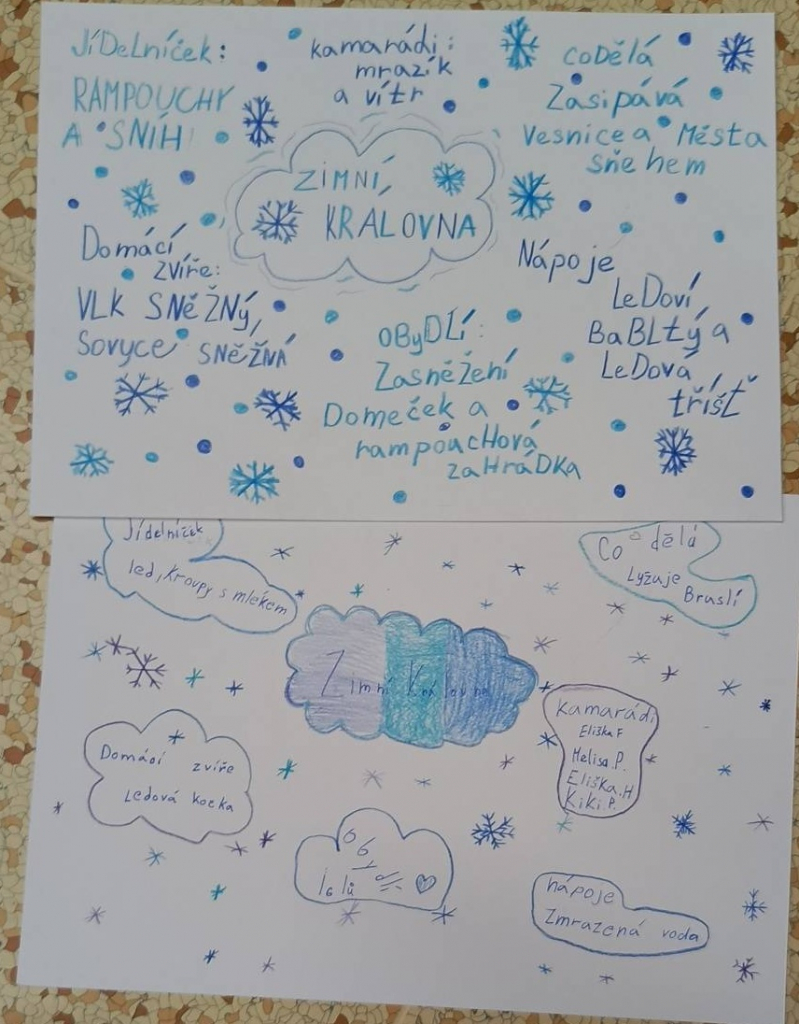 JíDelníček:
RAMPOUCHY
A SNÍH
kamarádi:
mrazík
a vítr
coDělá
Zasipává
Vesnice a Města
sňehem
ZIMNÍ
KRALOVNA
Domácí
zvíře:
VLK SNĚŽNÝ,
Sovyce SNĚŽNÁ
oByDLÍ:
Zasněžení
Domeček a
rampoucHová
zaHráDKa
Nápoje
LeDoví
BaBLtý a
LeDová
tříšť
Jídelníček
led, Kroupy s mlékem
Co dělá
Lyžuje
Bruslí
Zimní Královna
Kamarádi
Eliška F
Melisa.P.
Eliška.H
Kiki.P.
Domácí zvíře
Ledová kočka
nápoje
Zmrazená voda